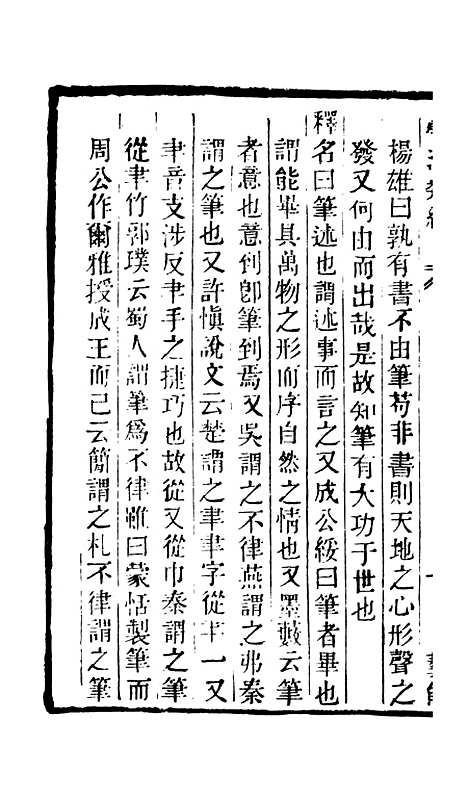 楊雄曰孰有書不由筆苟非書則天地之心形聲之
發又何由而出哉是故知筆有大功于世也
釋名曰筆述也謂述事而言之又成公綏曰筆者畢也
謂能畢具萬物之形而序自然之情也又墨藪云筆
者意也意到卽筆到焉又吳謂之不律燕謂之弗秦
謂之筆也又許慎說文云楚謂之聿聿字從帇一又
帇音支涉反帇手之捷巧也故從又從巾秦謂之筆
從聿竹郭璞云蜀人謂筆爲不律雖曰蒙恬製筆而
周公作爾雅授成王而已云簡謂之札不律謂之筆